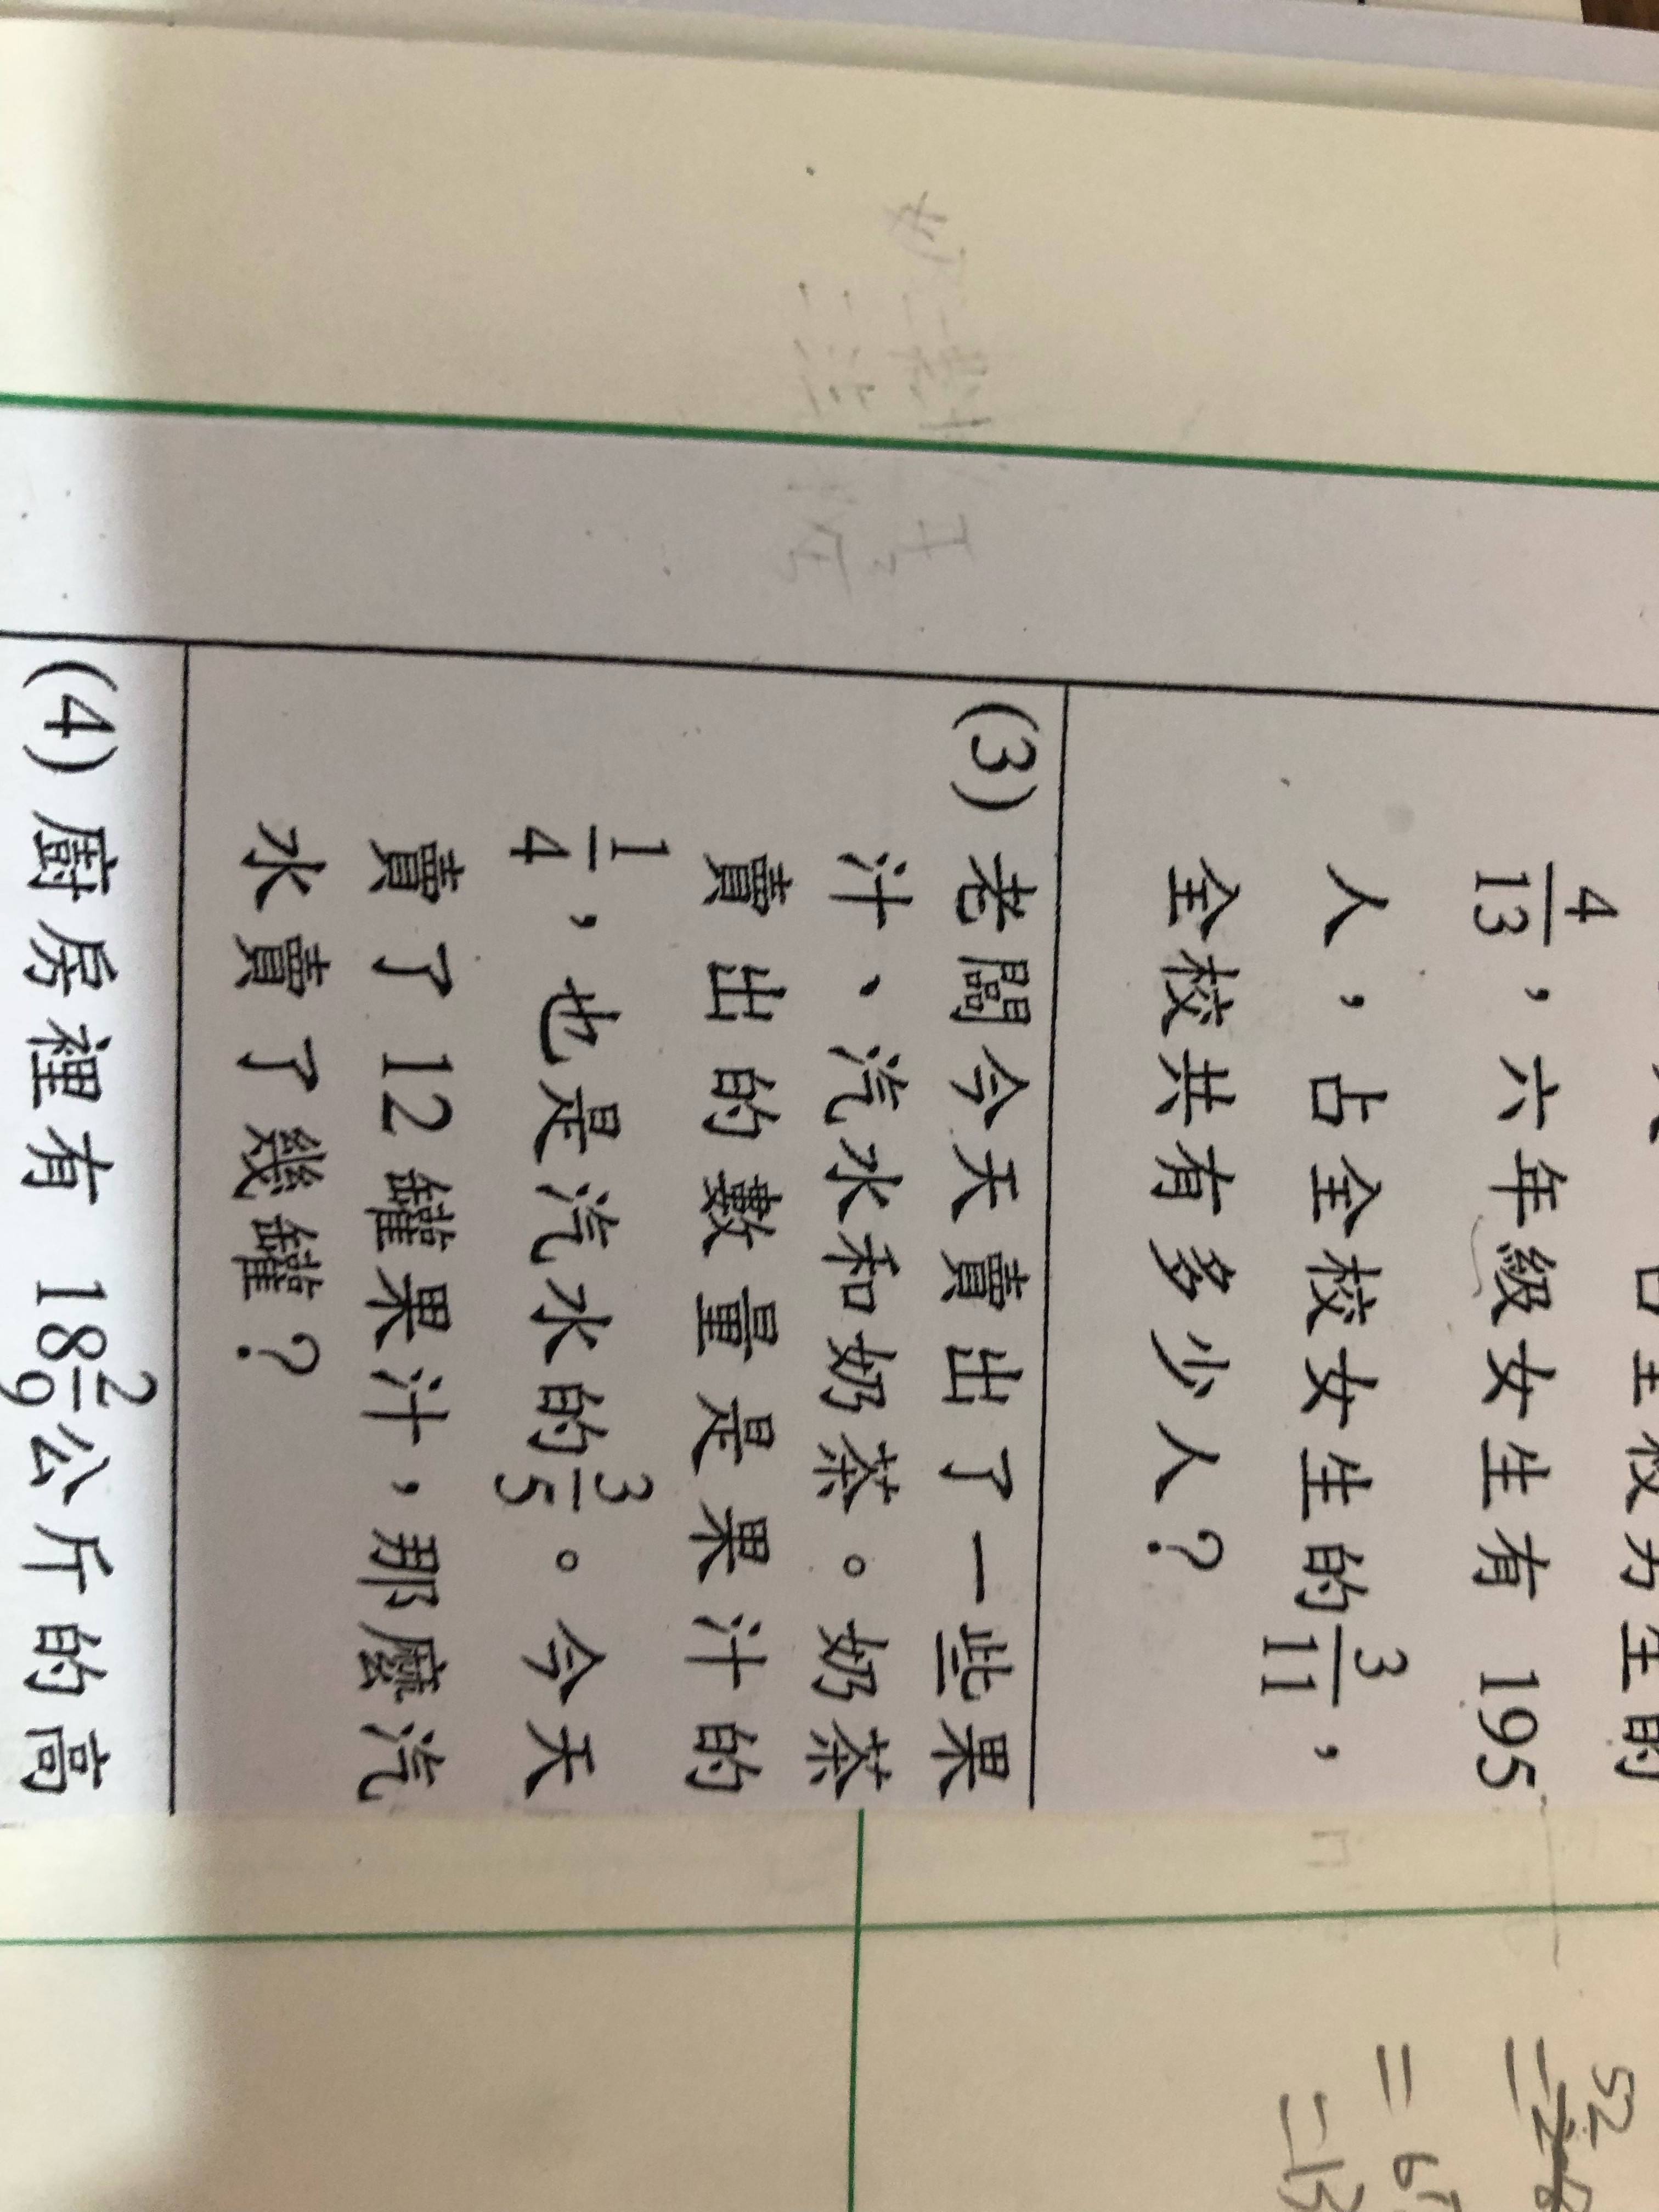 4/13，六年級女生有 195
人，占全校女生的3/11，
全校共有多少人？
(3) 老闆今天賣出了一些果
汁、汽水和奶茶。奶茶
賣出的數量是果汁的
1/4，也是汽水的3/5。今天
賣了 12 罐果汁，那麼汽
水賣了幾罐？
(4) 廚房裡有 18 2/9公斤的高
52